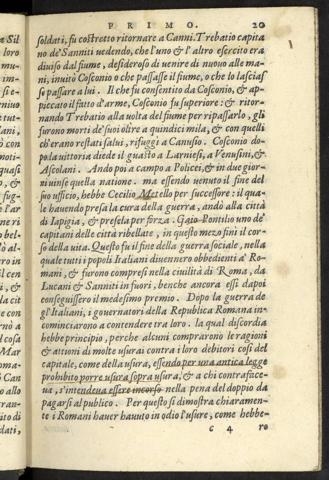 PRIMO. 20
soldati, fu costretto ritornare a Canni. Trebatio capita
no de'Sanniti uedendo, che l'uno & l'altro esercito era
diuiso dal fiume, desideroso di uenire di nuouo alle ma
ni, inuitò Cosconio o che passasse il fiume, o che lo lasciaß
se passare a lui. Il che fu consentito da Cosconio, & ap
piccato il fatto d'arme, Cosconio fu superiore: & ritor-
nando Trebatio alla uolta del fiume per ripassarlo, gli
furono morti de'suoi oltre a quindici mila, & con quelli
ch'erano restati salui, rifuggì a Canusio. Cosconio do-
po la uittoria diede il guasto a Larniesi, a Venusini, &
Ascolani. Andò poi a campo a Policei, & in due gior-
ni uinse quella natione. ma essendo uenuto il fine del
suo ufficio, hebbe Cecilio Metello per successore: il qua-
le hauendo presa la cura della guerra, andò alla città
di Iapigia, & presela per forza. Gaio Pontilio uno de'
capitani delle città ribellate, in questo mezo finì il cor-
so della uita. Questo fu il fine della guerra sociale, nella
quale tutti i popoli Italiani diuennero obbedienti a' Ro-
mani, & furono compresi nella ciuilità di Roma, da
Lucani & Sanniti in fuori, benche ancora essi dapoi
conseguissero il medesimo premio. Dopo la guerra de
gl'Italiani, i gouernatori della Republica Romana in-
cominciarono a contendere tra loro. la qual discordia
hebbe principio, perche alcuni comprarono le ragioni
& attioni di molte usurai contra i loro debitori così del
capitale, come della usura, essendo per una antica legge
prohibito porre usura sopra usura, & a chi contraface-
ua, s'intendeua essere incorso nella pena del doppio da
pagarsi al publico. Per questo si dimostra chiaramen-
te i Romani hauer hauuto in odio l'usure, come hebbe-
c 4 ro